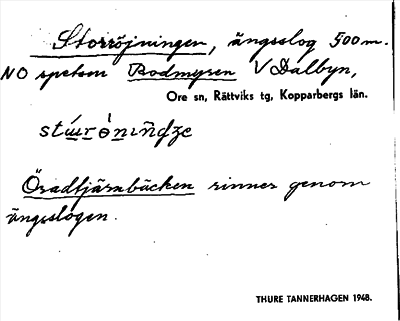 Storröjningen, ängsslog 500 m.
NO spetsen Bodmyren V Dalbyn,
Ore sn, Rättviks tg, Kopparbergs län.
Öradtjärnbäcken rinner genom
ängsslogen.
THURE TANNERHAGEN 1948.